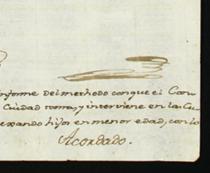 informe del methodo con que el Con
Ciudad toma, y interviene en la Cu
exando hijos en menor edad, con lo
Acordado.